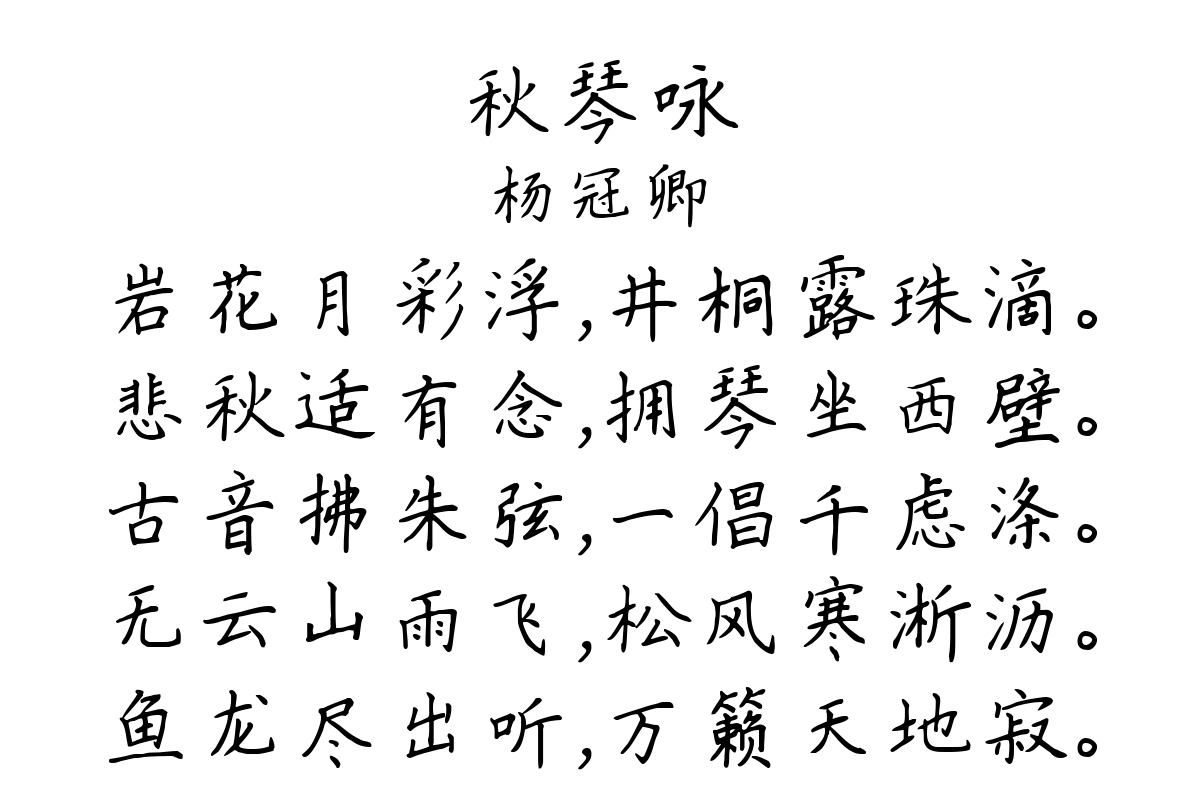 秋琴咏
杨冠卿
岩花月彩浮,井桐露珠滴。
悲秋适有念,拥琴坐西壁。
古音拂朱弦,一倡千虑涤。
无云山雨飞,松风寒淅沥。
鱼龙尽出听,万籁天地寂。